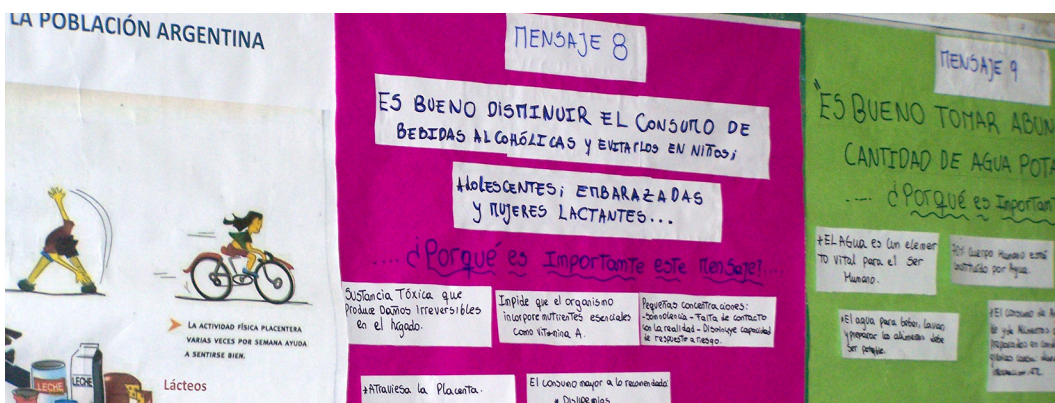 LA POBLACIÓN ARGENTINA
LA ACTIVIDAD FÍSICA PLACENTERA
VARIAS VECES POR SEMANA AYUDA
A SENTIRSE BIEN.
LECHE
LECHE
Lácteos
MENSAJE 8
ES BUENO DISMINUIR EL CONSUMO DE
BEBIDAS ALCOHÓLICAS y EVITARLOS EN NIÑOS;
ADOLESCENTES; EMBARAZADAS
Y MUJERES LACTANTES...
.... ¿Porqué es Importante este Mensaje!....
Sustancia Tóxica que
Produce Daños Irreversibles
en el Hígado.
Impide que el organismo
incorpore nutrientes esenciales
como vitamina A.
Pequeñas concentraciones:
-Somnolencia - Falta de contacto
con la realidad - Disminuye capacidad
de respuesta a riesgo.
+Atraviesa la Placenta.
El consumo mayor a lo recomendado:
* Dislipemias
MENSAJE 9
"ES BUENO TOMAR ABUN
CANTIDAD DE AGUA POTA
.... ¿Porqué es Important
+EL AGUA es un elemen
TO vital para el Ser
Humano.
Cuerpo Humano está
por Agua.
+El agua para beber, lavar
y preparar los alimentos debe
ser potable.
+El consumo de A